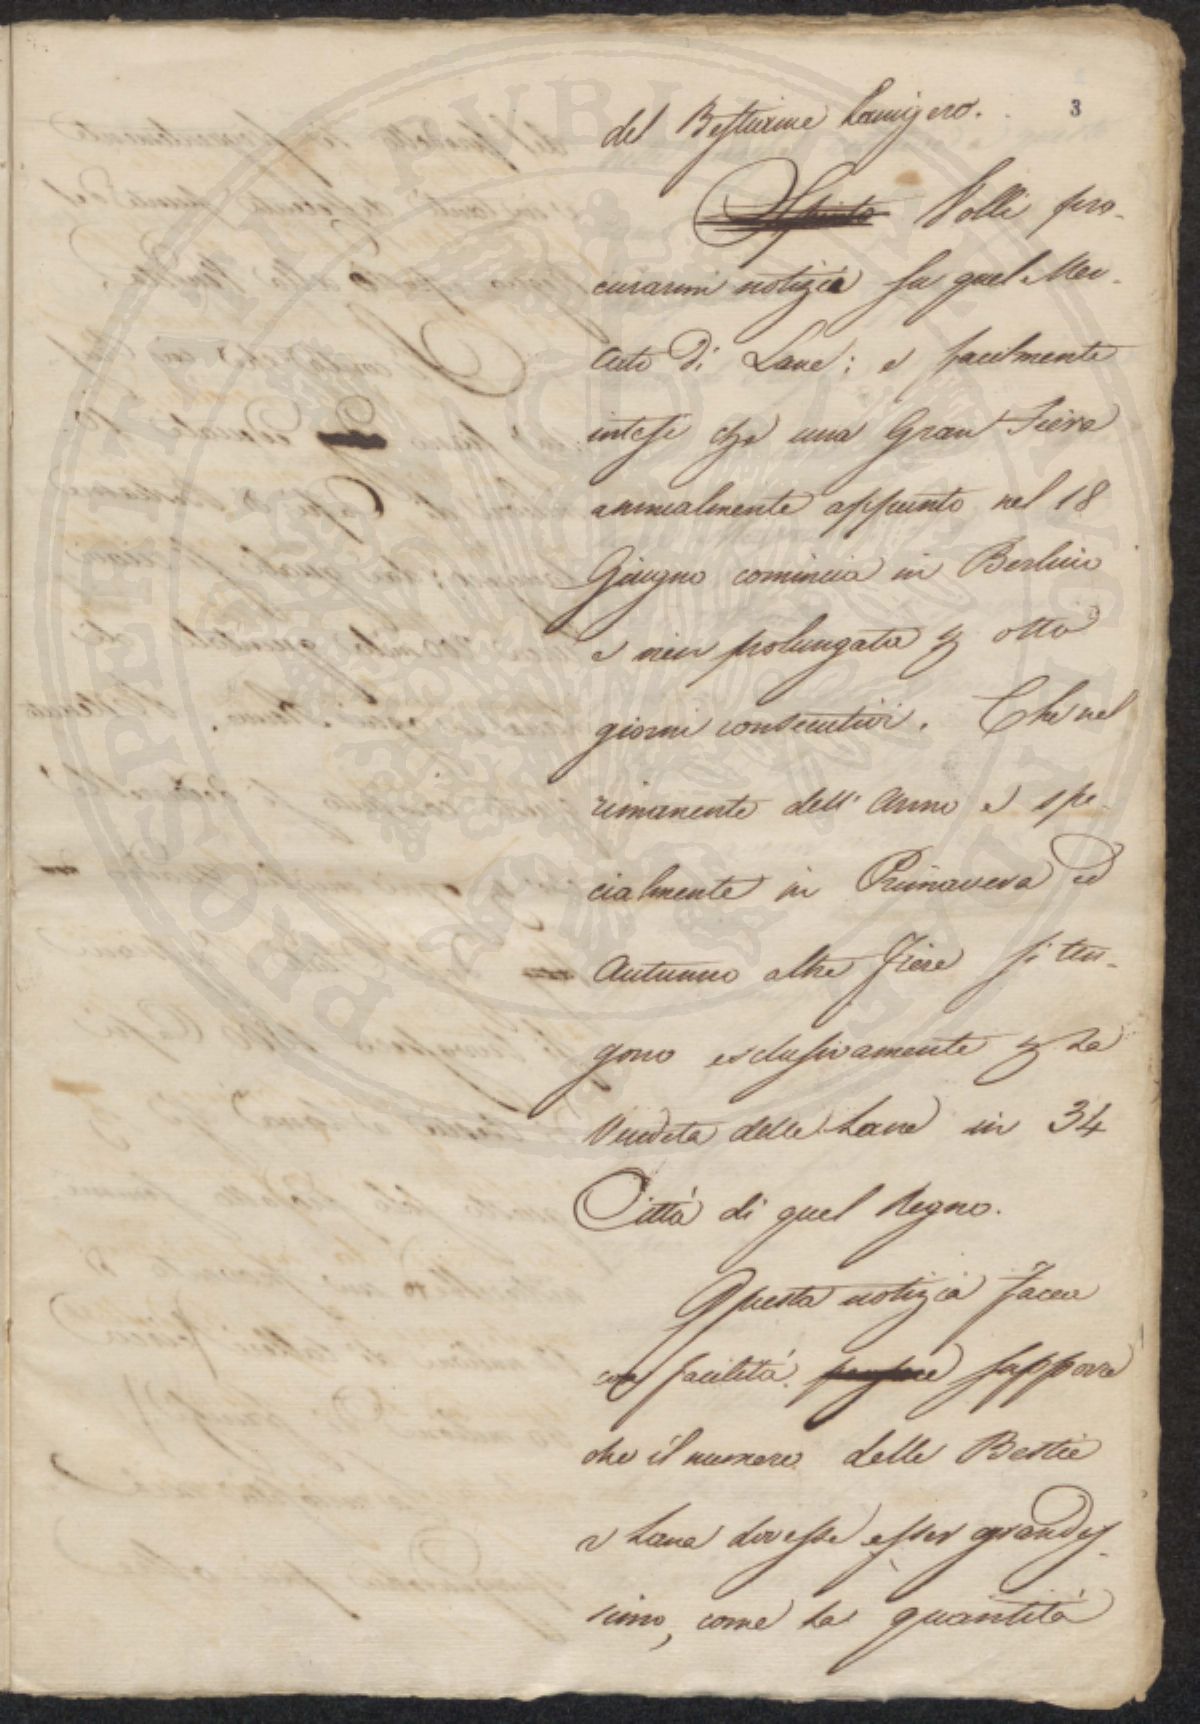 3
del Bestiame Lanigero.
Spinto Volli pro-
curarmi notizie su quel Mer-
cato di Lane; e facilmente
intesi che una Gran Fiera
annualmente appunto nel 18
Giugno comincia in Berlino
e vien prolungata p otto
giorni consecutivi. Che nel
rimanente dell' Anno e spe-
cialmente in Primavera ed
Autunno altre Fiere si ten-
gono esclusivamente p la
Vendita delle Lane in 34
Città di quel Regno.
Questa notizia facea
con facilità supporre
che il numero delle Bestie
a Lana dovesse esser grandis-
simo, come la quantità